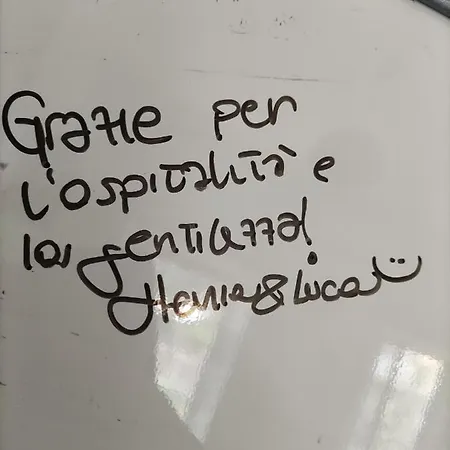 Grazie per
l'ospitalità e
la gentilezza!
& Luca